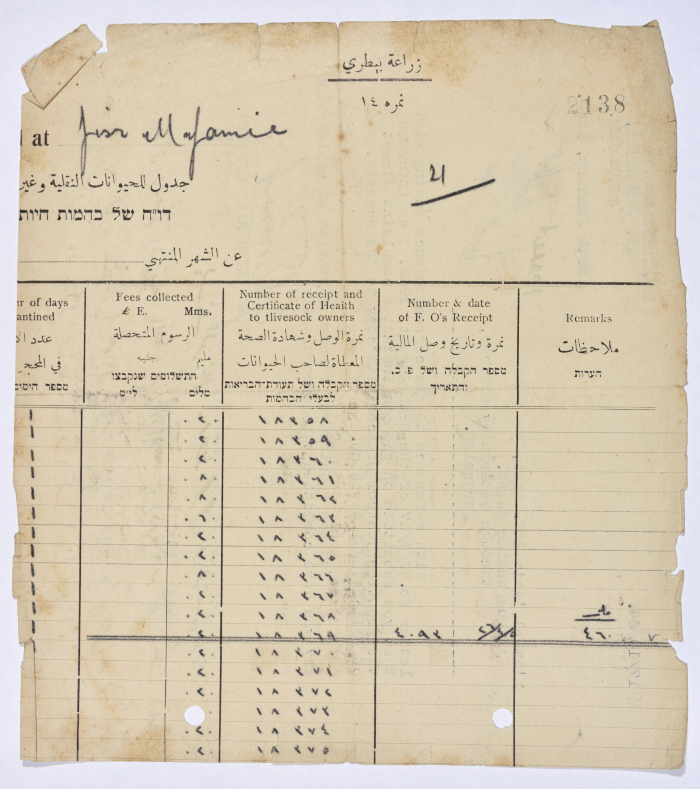 زراعة بيطري
نمره ١٤
2138
at Jisr el Majamie
21
جدول للحيوانات النقلية وغير
דו״ח של בהמות חיות
عن الشهر المنتهي
er of days
antined
عدد الا
في المحجر
מספר הימים
Fees collected
£ E. Mms.
الرسوم المتحصلة
مليم جنيه
התשלומים שנקבצו
מלים לי״מ
Number of receipt and
Certificate of Health
to tlivesock owners
نمرة الوصل وشهادة الصحة
المعطاة لصاحب الحيوانات
מספר הקבלה ושל תעודת-הבריאות
לבעלי הבהמות
Number & date
of F. O's Receipt
نمرة وتاريخ وصل المالية
מספר הקבלה ושל פ. כ.
והתאריך
Remarks
ملاحظات
הערות
١ ٠٢٠ ١٨٣٥٨
١ ٠٢٠ ١٨٣٥٩
١ ٠٢٠ ١٨٣٦٠
١ ٠٨٠ ١٨٣٦١
١ ٠٨٠ ١٨٣٦٢
١ ٠٦٠ ١٨٣٦٣
١ ٠٢٠ ١٨٣٦٤
١ ٠٢٠ ١٨٣٦٥
١ ٠٨٠ ١٨٣٦٦
١ ٠٢٠ ١٨٣٦٧
١ ٠٢٠ ١٨٣٦٨ مليم
١ ٠٢٠ ١٨٣٦٩ ٤٠٩٣ ٤٦٠ ٧
٠٢٠ ١٨٣٧٠
٠٢٠ ١٨٣٧١
٠٢٠ ١٨٣٧٢
١٨٣٧٣
٠٢٠ ١٨٣٧٤
٠٢٠ ١٨٣٧٥